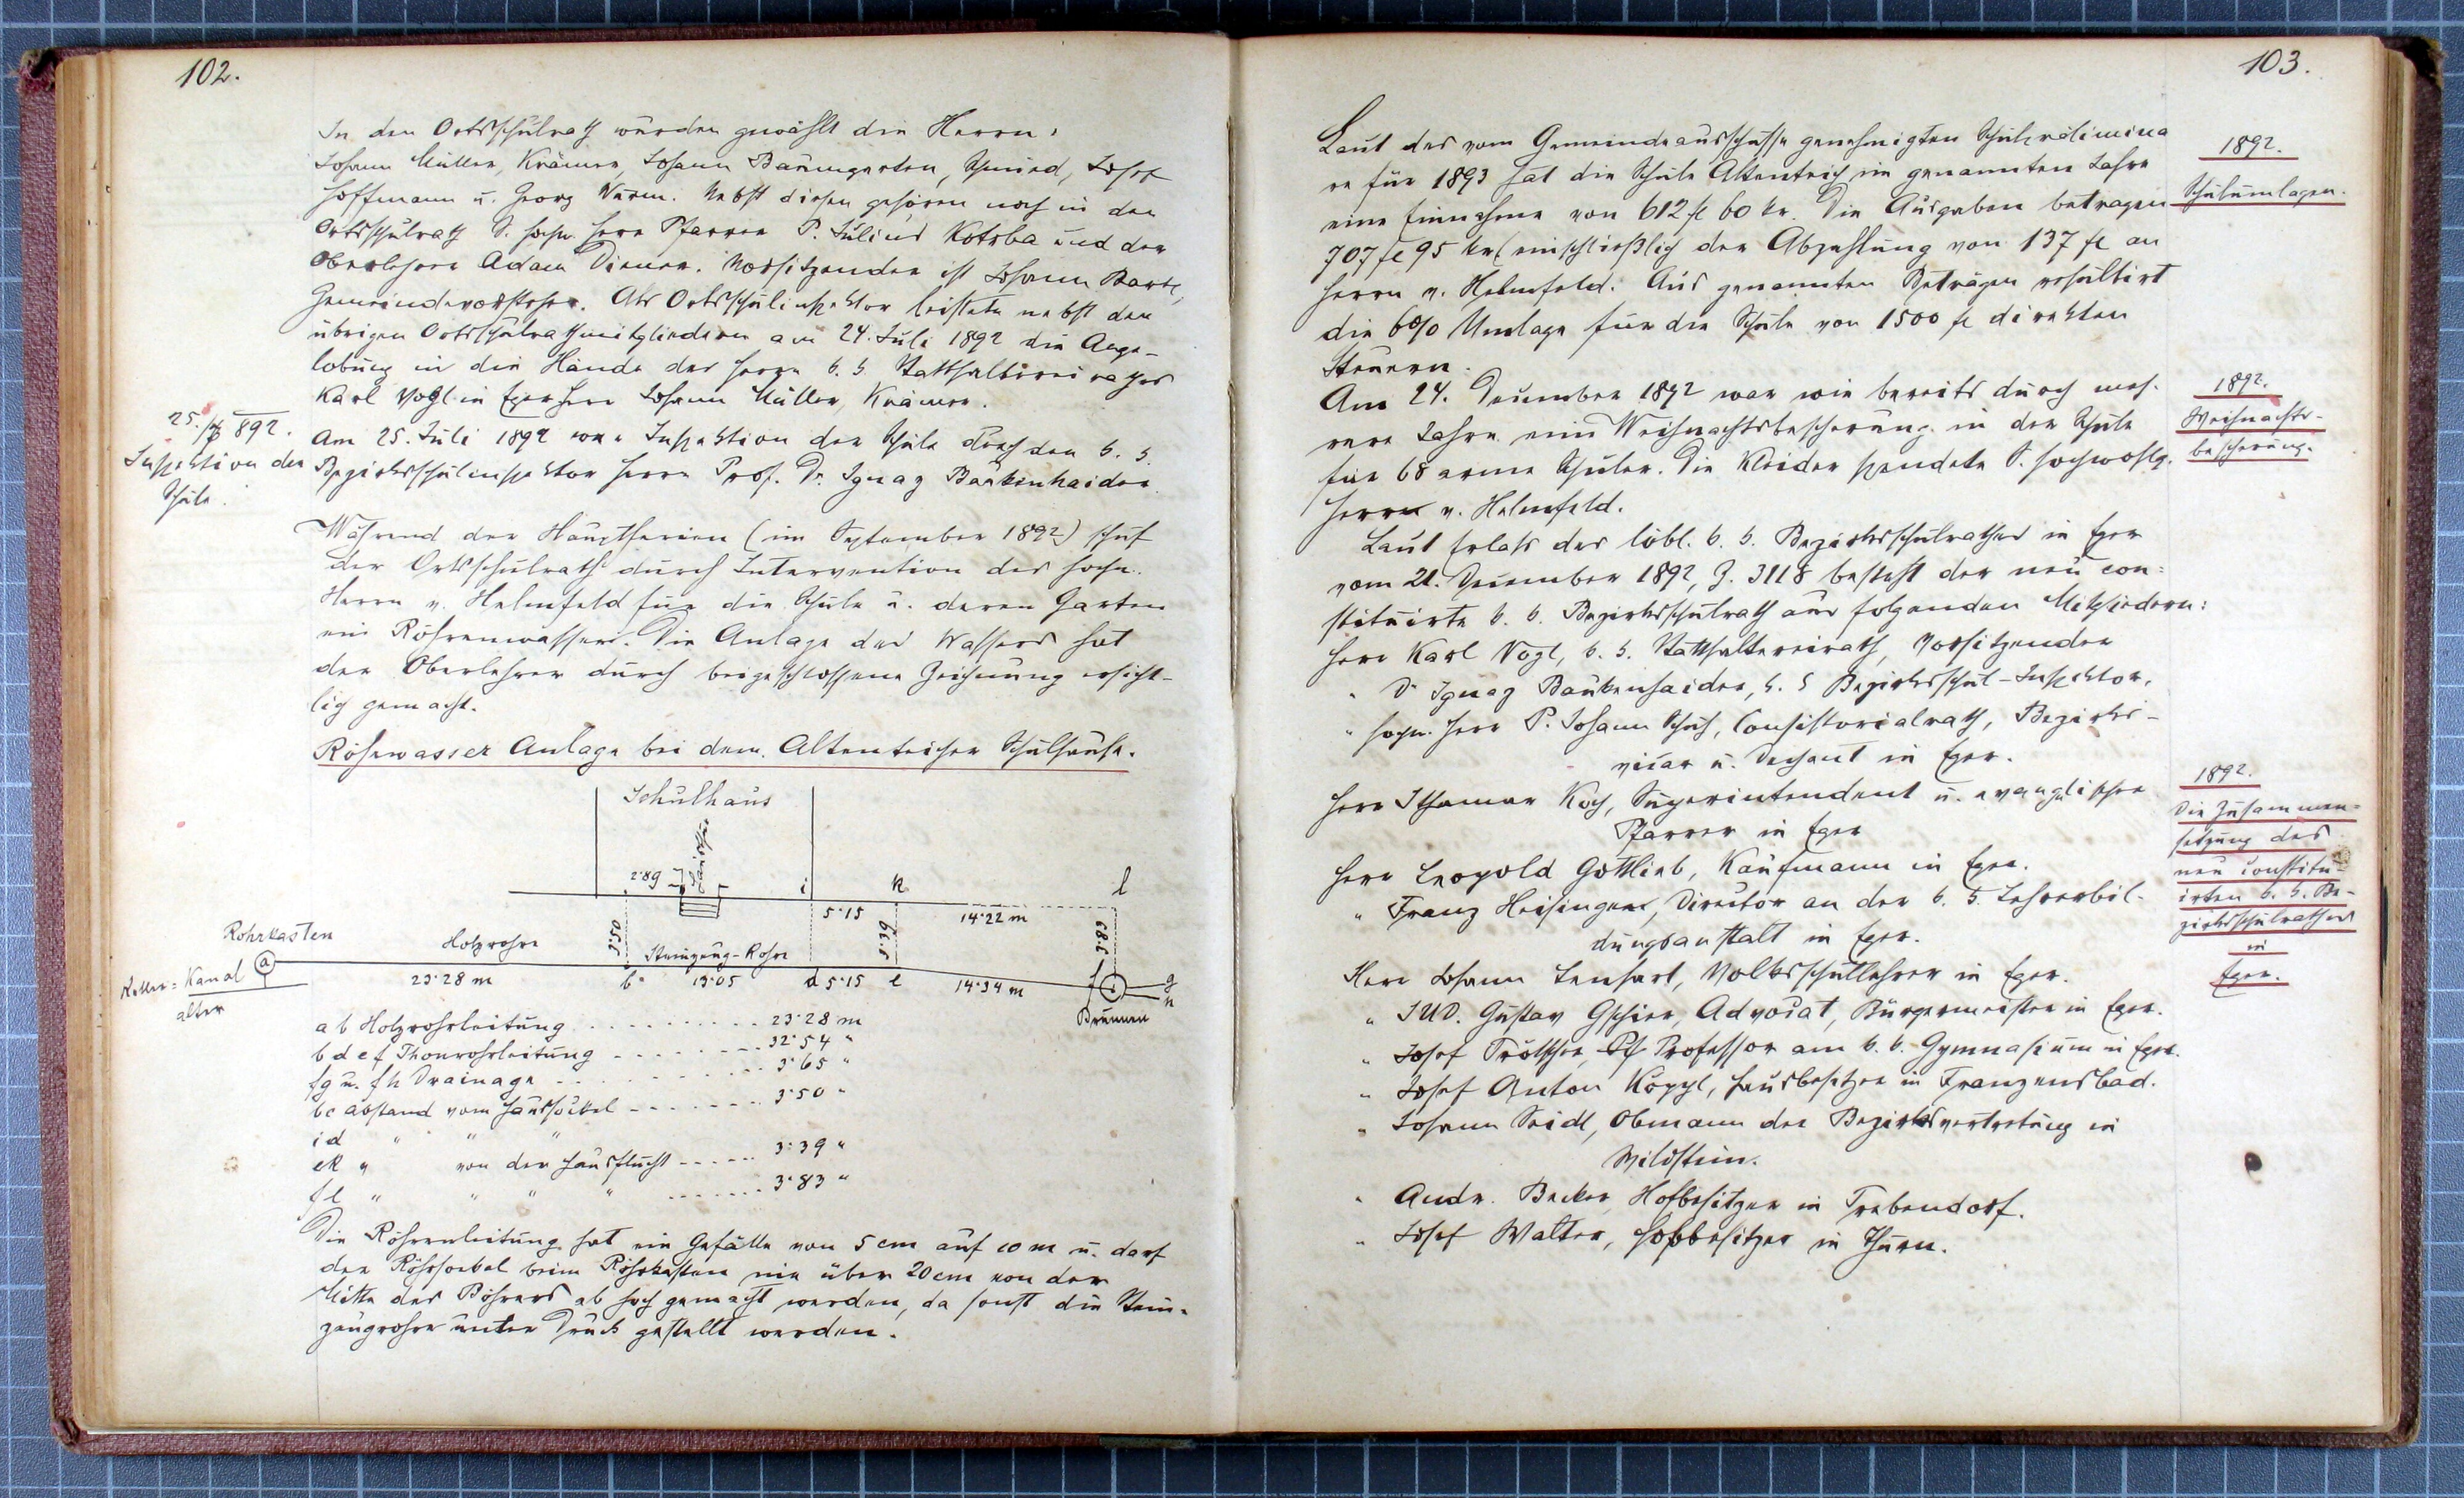 102.
In den Ortsschulrath wurden gewählt die Herrn:
Johann Müller, Krämer, Johann Baumgarten, Schmied, Josef
Hoffmann u. Georg Wurm. Nebst diesen gehören noch in den
Ortsschulrath S. hochw. Herr Pfarrer P. Julius Kotrba und der
Oberlehrer Adam Diener. Vorsitzender ist Johann Bartl,
Gemeindevorsteher. Als Ortsschulinspektor leistete nebst den
übrigen Ortsschulrathmitgliedern am 24. Juli 1892 die Ange-
lobung in die Hände des Herrn k. k. Statthaltereirathes
Karl Vogl in Eger Herr Johann Müller, Krämer.
25./7 892.
Inspektion der
Schule.
Am 25. Juli 1892 war Inspektion der Schule durch den k. k.
Bezirksschulinspektor Herrn Prof. Dr. Ignaz Baukenhaider
Während der Hauptferien (im September 1892) schuf
der Ortsschulrath durch Intervention des hochw.
Herrn v. Helmfeld für die Schule u. deren Garten
ein Röhrenwasser. Die Anlage des Wassers hat
der Oberlehrer durch beigeschlossene Zeichnung ersicht-
lich gemacht.
Röhrwasser Anlage bei dem Altenteicher Schulhause.
Schulhaus
2·89
i
k
l
5·15
14·22 m
3·50
3·39
3·83
Rohrkasten
Holzrohre
Steinzeug-Rohre
Keller=Kanal
alter
a
23·28 m
b
13·05
d
5·15
e
14·34 m
f
g
h
Brunnen
a b Holzrohrleitung 23·28 m
b d e f Thonrohrleitung 32·54 "
f g u. f h Drainage 3·65 "
b c Abstand vom Haussockel 3·50 "
i d " " "
e k " von der Hausflucht 3·39 "
f l " " " " 3·83 "
Die Röhrenleitung hat ein Gefälle von 5 cm auf 10 m u. darf
der Rohrsockel beim Röhrkasten nie über 20 cm von der
Mitte des Rohres ab hoch gemacht werden, da sonst die Stein-
zeugrohre unter Druck gestellt werden.
103.
Laut des vom Gemeindeausschusse genehmigten Schulprälimina
re für 1893 hat die Schule Altenteich im genannten Jahre
eine Einnahme von 612 fl 60 kr. Die Ausgaben betragen
707 fl 95 kr (einschließlich der Abzahlung von 137 fl an
Herrn v. Helmfeld. Aus genannten Beträgen resultirt
die 6% Umlage für die Schule von 1500 fl direkten
Steuern.
1892.
Schulumlagen.
Am 24. Dezember 1892 war wie bereits durch meh-
rere Jahre eine Weihnachtsbescherung in der Schule
für 68 arme Schüler. Die Kleider spendete S. hochwohlg.
Herrn v. Helmfeld.
1892.
Weihnachts-
bescherung.
Laut Erlass des löbl. k. k. Bezirksschulrathes in Eger
vom 21. Dezember 1892, Z. 3118 besteht der neu con-
stituirte k. k. Bezirksschulrath aus folgenden Mitgliedern:
Herr Karl Vogl, k. k. Statthaltereirath, Vorsitzender
" Dr Ignaz Baukenhaider, k. k. Bezirksschul-Inspektor.
" hochw. Herr P. Johann Schuh, Consistorialrath, Bezirks-
vicar u. Dechant in Eger.
Herr Ithamar Koch, Superintendent u. evangelischer
Pfarrer in Eger
Herr Leopold Gottlieb, Kaufmann in Eger.
" Franz Heisinger, Director an der k. k. Lehrerbil-
dungsanstalt in Eger.
Herr Johann Lenhart, Volksschullehrer in Eger.
" JUD. Gustav Gschier, Advocat, Bürgermeister in Eger.
" Josef Trötscher, Professor am k. k. Gymnasium in Eger.
" Josef Anton Köppl, Hausbesitzer in Franzensbad.
" Johann Seidl, Obmann der Bezirksvertretung in
Wildstein.
" Andr. Becker, Hofbesitzer in Trebendorf.
" Josef Walter, Hofbesitzer in Thurn.
1892.
Die Zusammen=
setzung des
neu constitu-
irten k. k. Be-
zirksschulrathes
in
Eger.